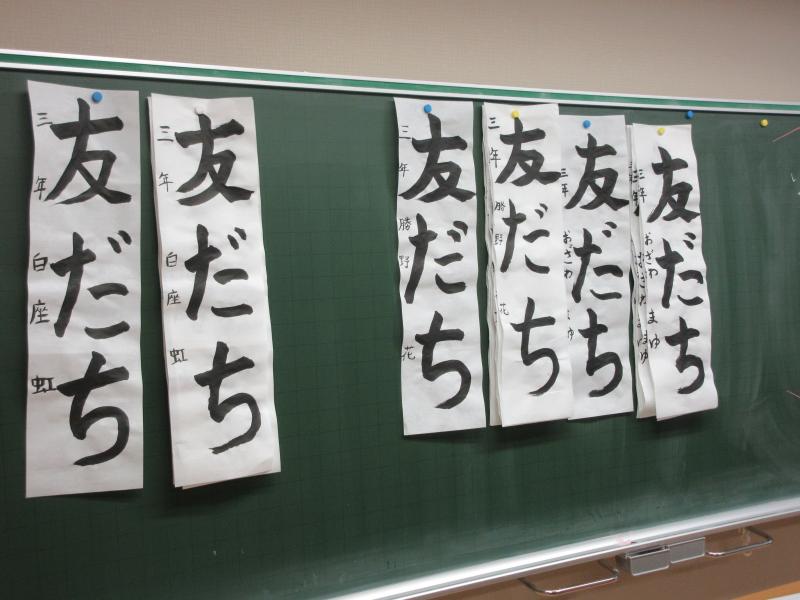 友だち
三年 白座 虹
友だち
三年 白座 虹
友だち
三年 勝野 花
友だち
三年 勝野 花
友だち
三年 おざわ まゆ
友だち
三年 おざわ まゆ